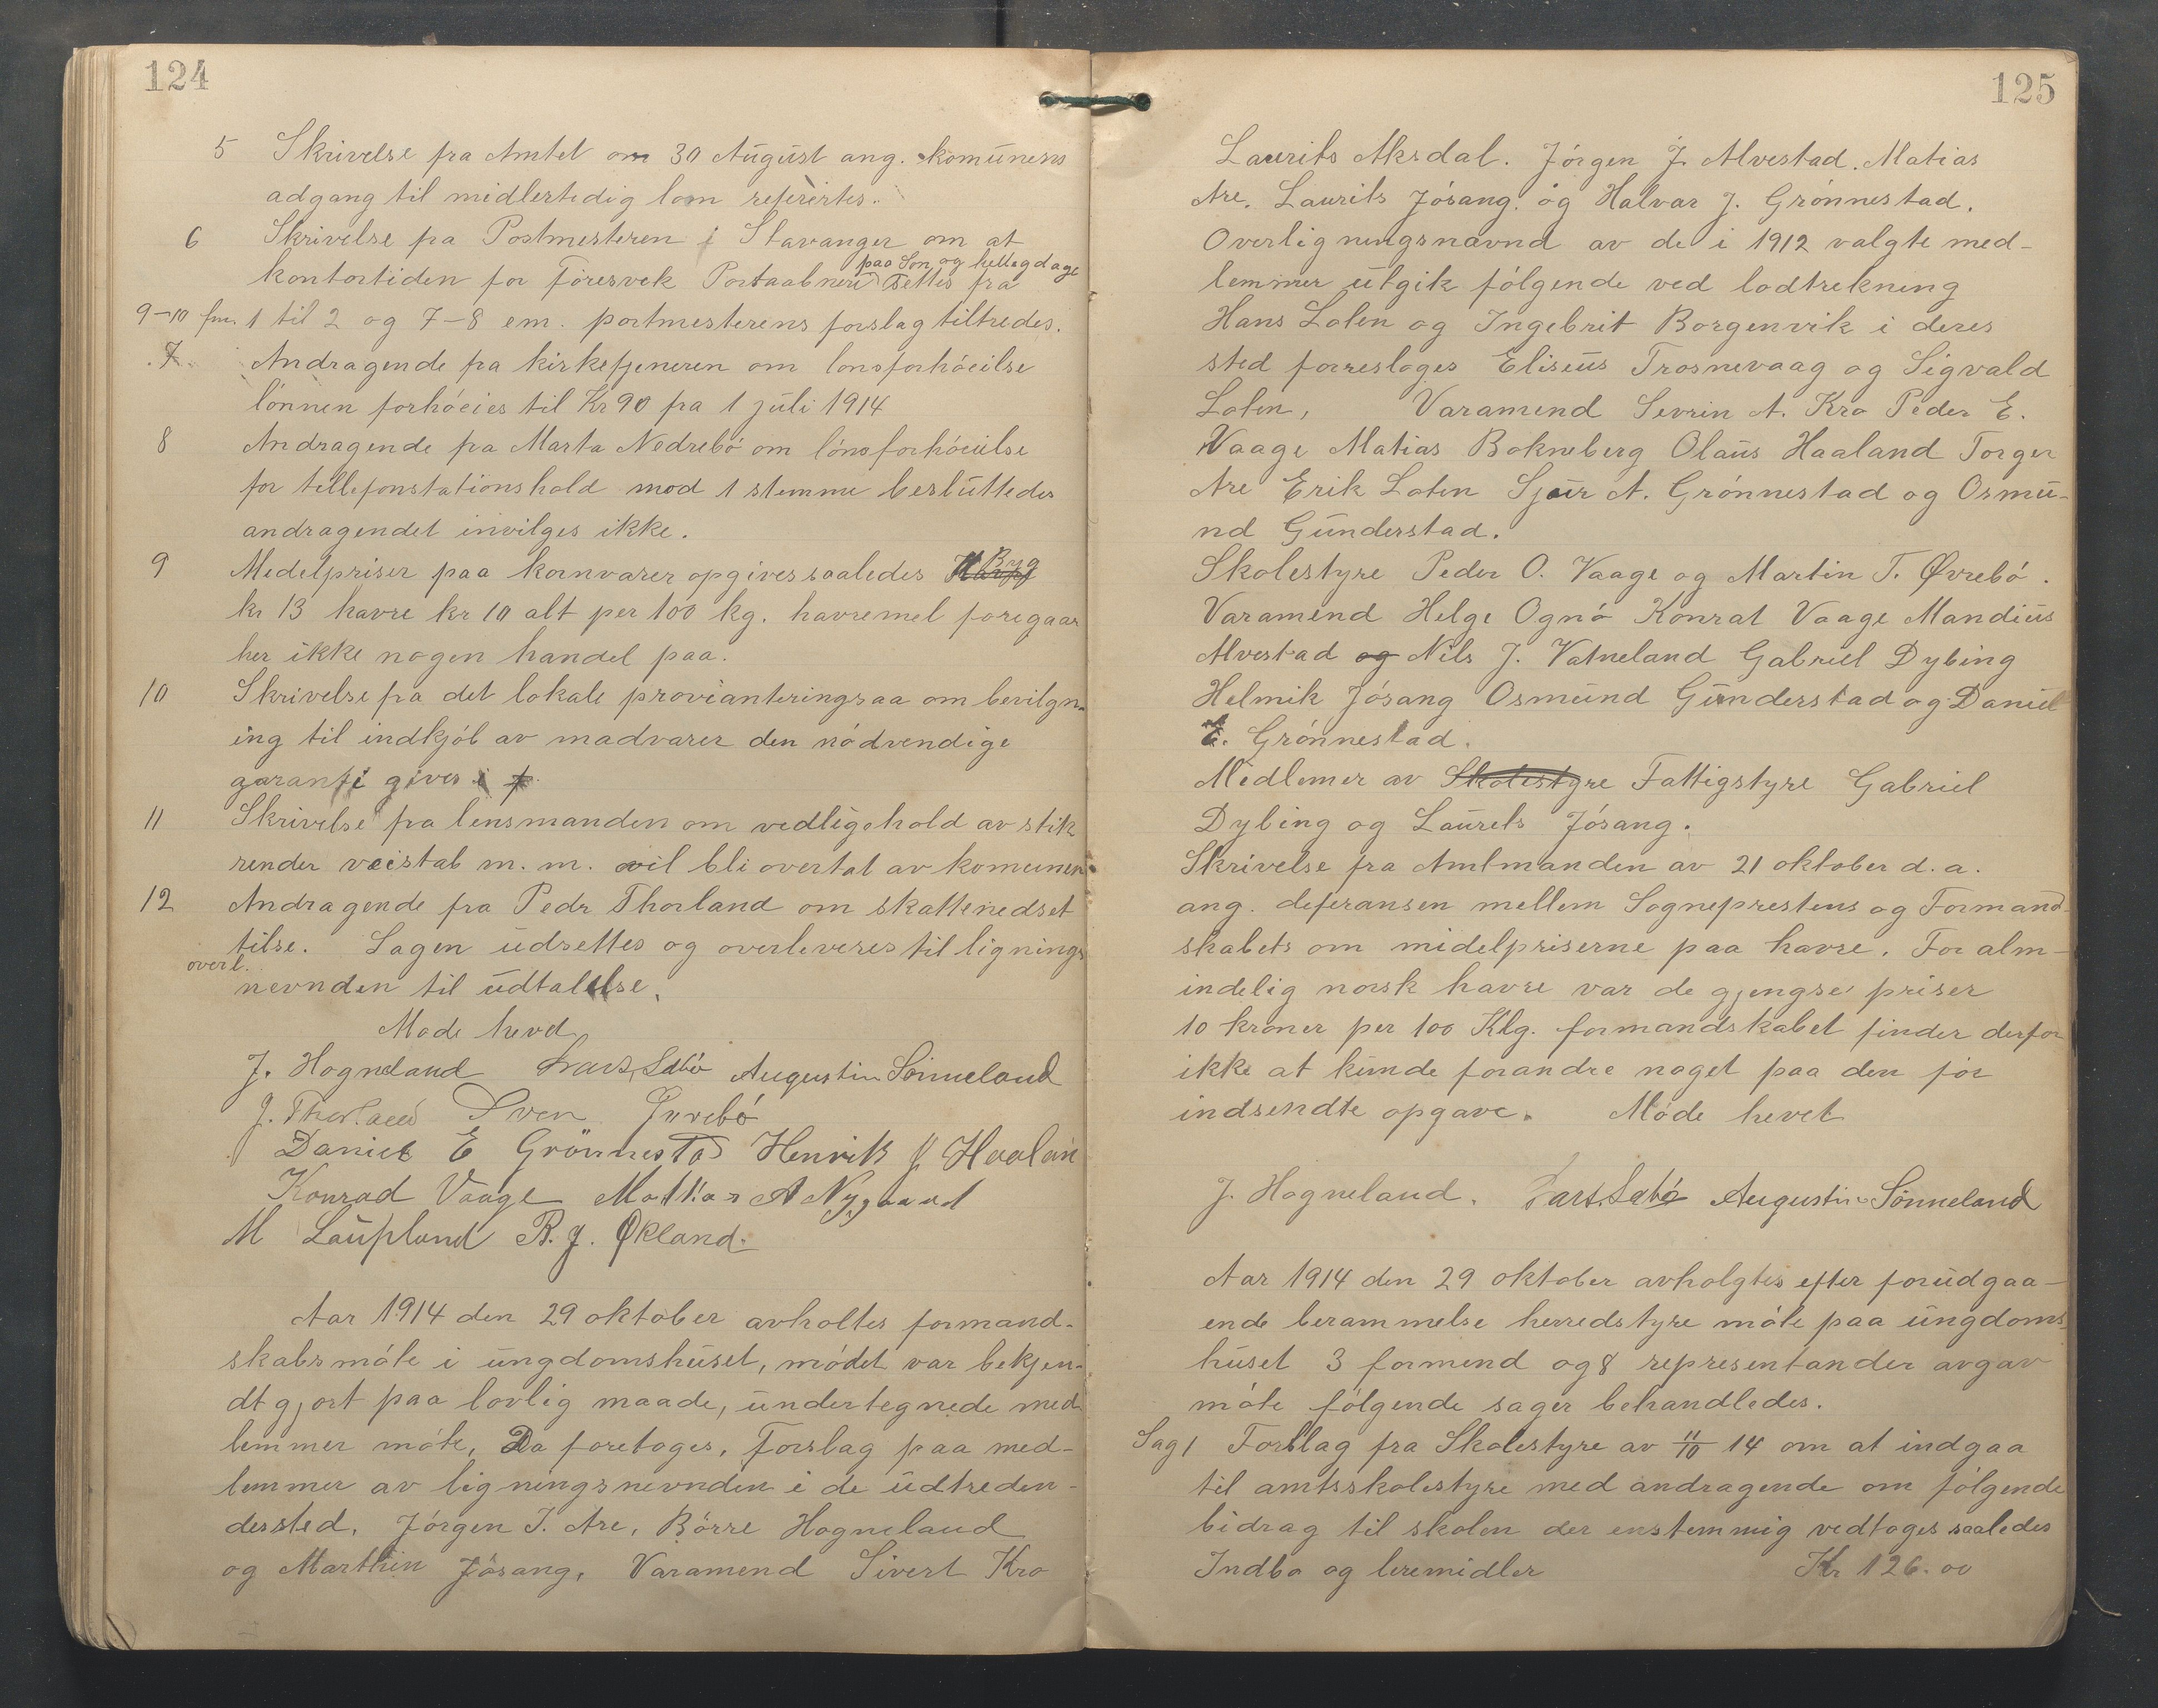 124
5 Skrivelse fra Amtet om 30 August ang. komunens
adgang til midlertedig lom refereertes.
6 Skrivelse fra Postmesteren i Stavanger om at
paa Søn og hellegdage
kontortiden for Føresvek Postaabneri settes fra
9-10 fm. 1 til 2 og 7-8 em. postmesterens forslag tiltredes.
7 Andragende fra kirketjeneren om lønsforhøeilse
lønnen forhøeies til Kr 90 fra 1 juli 1914
8 Andragende fra Marta Nedrebø om lønsforhøeielse
for tellefonstationshold mod 1 stemme besluttedes
andragendet invilges ikke.
9 Medelpriser paa kornvarer opgives saaledes Byg
kr 13 havre kr 10 alt per 100 kg. havremel foregaar
her ikke nogen handel paa.
10 Skrivelse fra det lokale provianteringsaa om bevilgn-
ing til indkjøb av madvarer den nødvendige
garanti gives
11 Skrivelse fra lensmanden om vedligehold av stik
render veistab m. m. vil bli overtat av komunen
12 Andragende fra Pedr Thorland om skattenedset
tilse. Sagen udsettes og overleveres til lignings
overl.
nevnden til udtalelse.
Møde hevd
J. Hogneland Lars Sebø Augustin Sønneland
J. Thorland Sven Øvrebø
Daniel E Grönnestad Henrik J Haalan
Konrad Vaage Mattias A Nygaard
M Laupland R. J. Økland.
Aar 1914 den 29 oktober avholtes formand-
skabsmøte i ungdomshuset, mødet var bekjen-
dtgjort paa lovlig maade, undertegnede med
lemmer møte, Da foretoges, Forslag paa med-
lemmer av ligningsnevnden i de udtreden-
dersted. Jørgen T. Are, Børre Hogneland
og Marthin Jøsang, Varamend Sivert Kro
125
Laurits Aksdal. Jørgen J. Alvestad. Matias
Are. Laurits Jøsang. og Halvar J. Grønnestad.
Overligningsnavnd av de i 1912 valgte med-
lemmer utgik følgende ved lodtrekning
Hans Loten og Ingebrit Borgenvik i deres
sted foresloges Eliseus Trosnevaag og Sigvald
Loten, Varamend Sevrin A. Kro Peder E.
Vaage Matias Bokneberg Olaus Haaland Torger
Are Erik Loten Sjur A. Grønnestad og Osmu-
nd Gunderstad.
Skolestyre Peder O. Vaage og Martin T. Øvrebø.
Varamend Helge Ognø Konrat Vaage Mandius
Alvestad og Nils J. Vatneland Gabriel Dybing
Helmik Jøsang Osmund Gunderstad og Daniel
E. Grønnestad.
Medlemer av Skolestyre Fattigstyre Gabriel
Dybing og Laurets Jøsang.
Skrivelse fra Amtmanden av 21 oktober d. a.
ang. deferansen mellem Sogneprestens og Formand-
skabets om midelpriserne paa havre. For alm-
indelig norsk havre var de gjengse priser
10 kroner per 100 Klg. formandskabet finder derfor
ikke at kunde forandre noget paa den før
indsendte opgave. Møde hevet
J. Hogneland. Lars Sebø Augustin Sønneland
Aar 1914 den 29 oktober avholgtes efter forudgaa-
ende berammelse herredstyre møte paa ungdoms
huset 3 formend og 8 representander avgav
møte følgende sager behandledes.
Sag 1 Forslag fra Skolestyre av 11/10 14 om at indgaa
til amtsskolestyre med andragende om følgende
bidrag til skolen der enstemmig vedtoges saaledes
Indbo og leremidler Kr 126.00